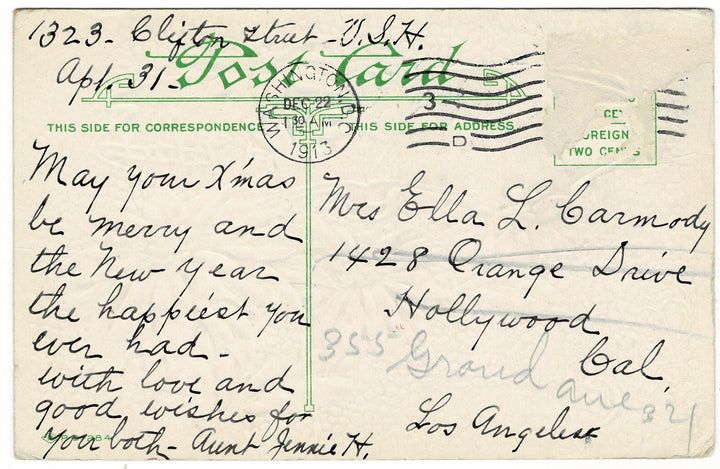 1323 - Clifton Street - U.S.H.
Apt. 31 -
Post Card
WASHINGTON, D.C.
DEC 22
1 30 AM
1913
3
D
THIS SIDE FOR CORRESPONDENCE
THIS SIDE FOR ADDRESS
FOREIGN
TWO CENTS
May your X'mas
be merry and
the New Year
the happiest you
ever had -
with love and
good wishes for
you both - Aunt Jennie H.
Mrs Ella L. Carmody
1428 Orange Drive
Hollywood
Cal.
355 Grand ave
Los Angeles